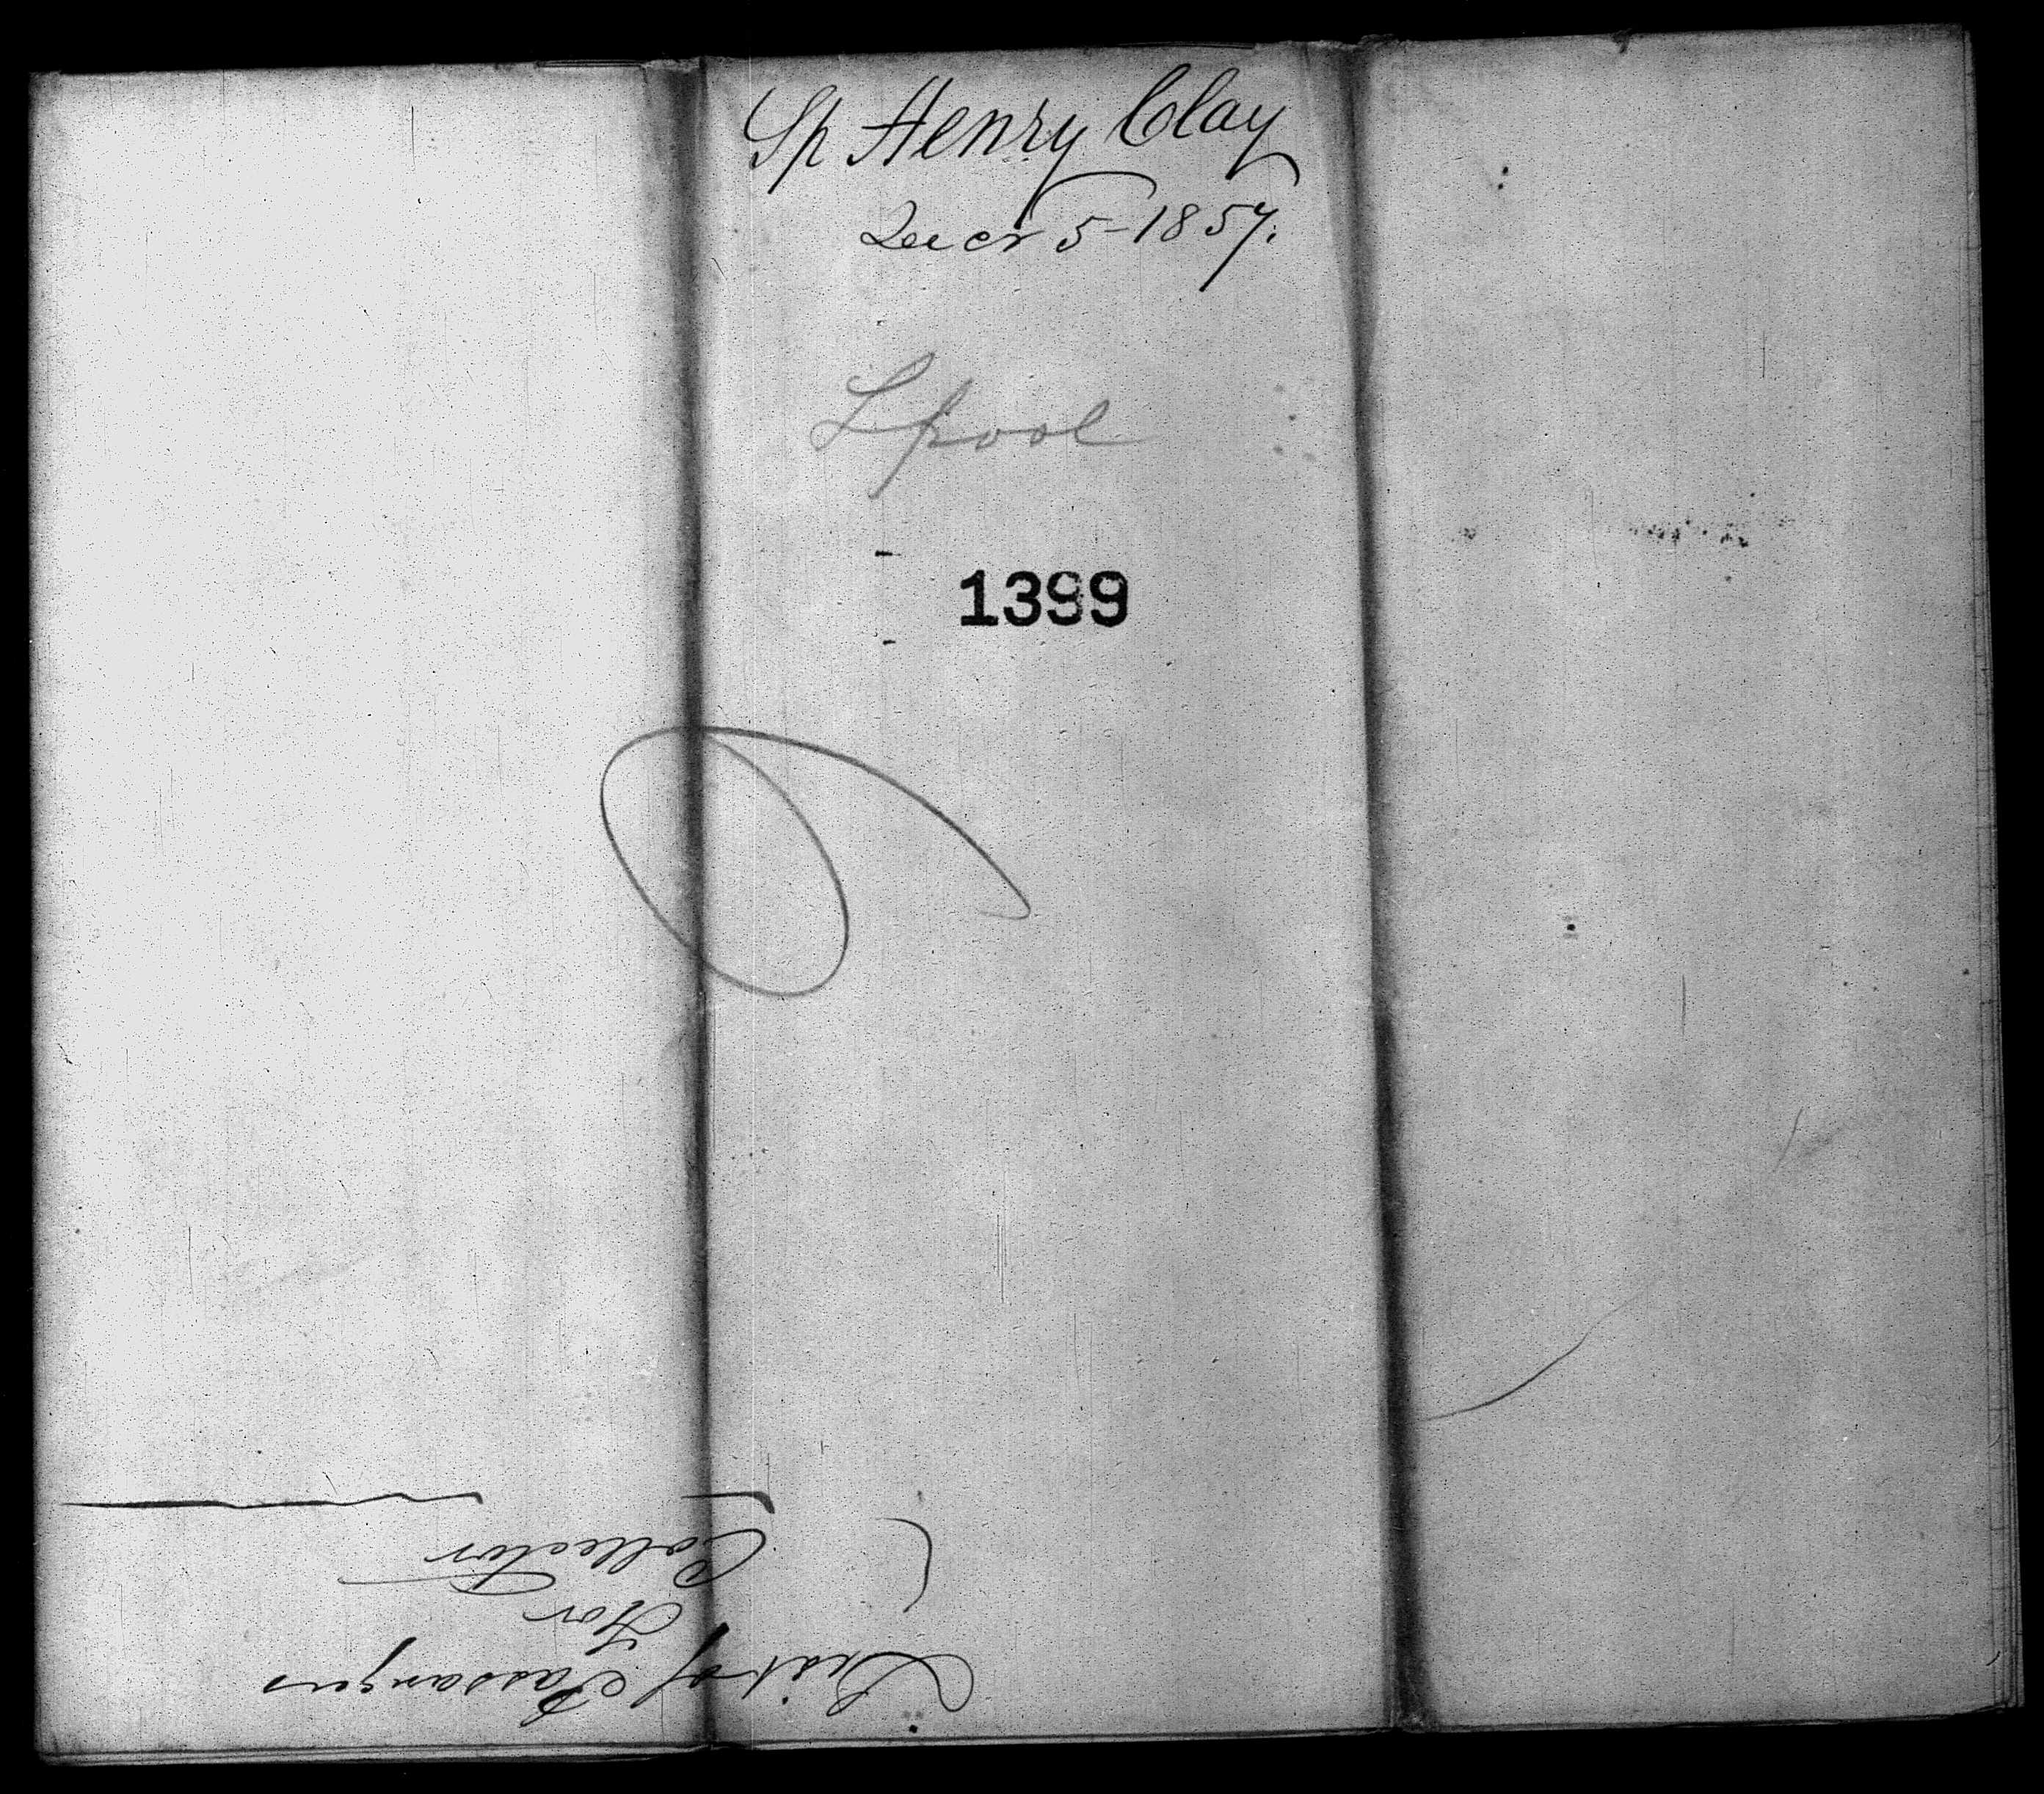 Sp Henry Clay
Decr 5-1857.
Lpool
1399
List of Passangers
For
Collector